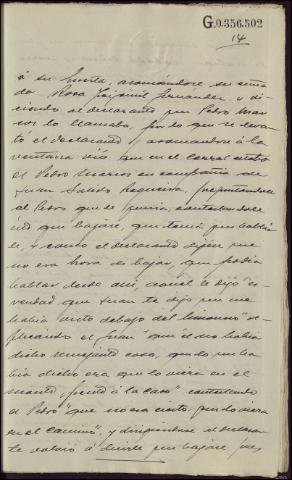 G.0.356.502
14
á su puerta, asomandose su criada
do Rosa Fernandez y di-
ciendo al declarante que Pedro Mar-
cos lo llamaba, por lo que se levan-
tó el declarante y asomandose á la
ventana vió que en el corral estaba
el Pedro Marcos en compañia de
Juan Regueira, preguntandole
al Pedro que le queria, contestandole
éste que bajase, que tenia que hablar-
le, y como el declarante dijese que
no era hora de bajar, que podia
hablar desde alli, aquel le dijo "es
verdad que Juan te dijo que me
habia visto debajo del" re-
plicando el Juan "que él no habia
dicho semejante cosa, que lo que ha-
bia dicho era que lo viera en el
frente á la casa" contestando
el Pedro "que no era cierto, que lo viera
en el camino", y dirigiendose al declaran-
te volvió á decirle que bajase, pues